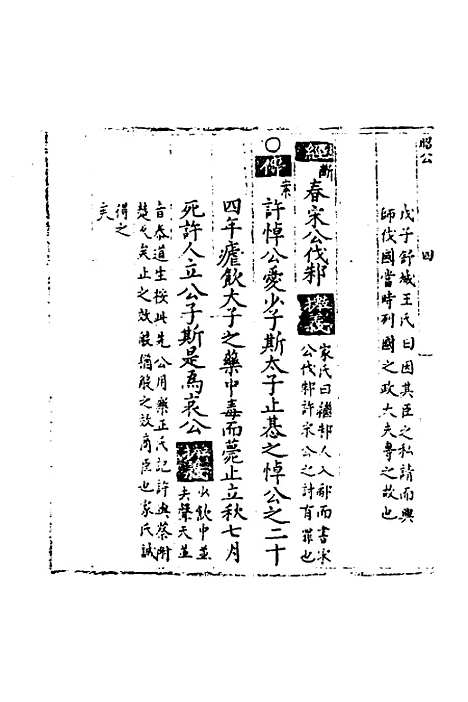 昭公
四
戊子舒城王氏曰因其臣之私請而興
師伐國當時列國之政大夫專之故也
經 斷 春宋公伐邾 攟義 家氏曰繼邾人入鄅而書宋
公伐邾許宋公之討有罪也
○傳 案 許悼公愛少子斯太子止惎之悼公之二十
四年瘧飲大子之藥中毒而薨止立秋七月
死許人立公子斯是為哀公 攟義 少飲中並
去聲夭並
音泰道生按此先公用樂正氏記許與蔡附
楚久矣止之放般猶般之放商臣也家氏誠
得之
矣